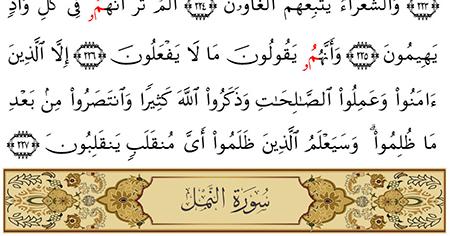 ﴿٢٢٣﴾ وَالشُّعَرَاءُ يَتَّبِعُهُمُ الْغَاوُونَ ﴿٢٢٤﴾ أَلَمْ تَرَ أَنَّهُمُۥ فِى كُلِّ وَادٍ
يَهِيمُونَ ﴿٢٢٥﴾ وَأَنَّهُمُۥ يَقُولُونَ مَا لَا يَفْعَلُونَ ﴿٢٢٦﴾ إِلَّا الَّذِينَ
ءَامَنُواْ وَعَمِلُواْ الصَّـٰلِحَـٰتِ وَذَكَرُواْ اللَّهَ كَثِيرًا وَانتَصَرُواْ مِنۢ بَعْدِ
مَا ظُلِمُواْ ۗ وَسَيَعْلَمُ الَّذِينَ ظَلَمُواْ أَىَّ مُنقَلَبٍ يَنقَلِبُونَ ﴿٢٢٧﴾
سُورَةُ النَّمْلِ